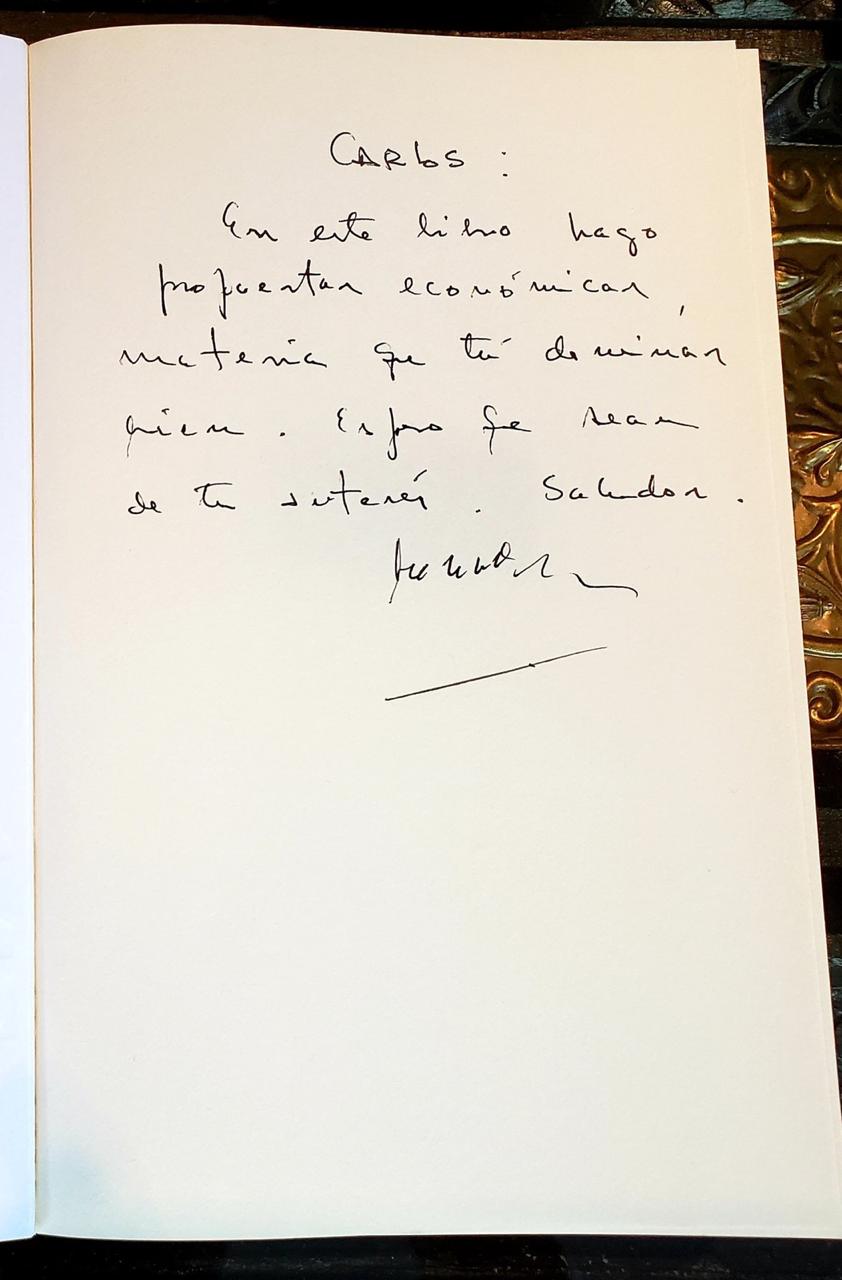 CARLOS :
En este libro hago
propuestas económicas,
materia que tú dominas
bien. Espero que sean
de tu interés. Saludos.